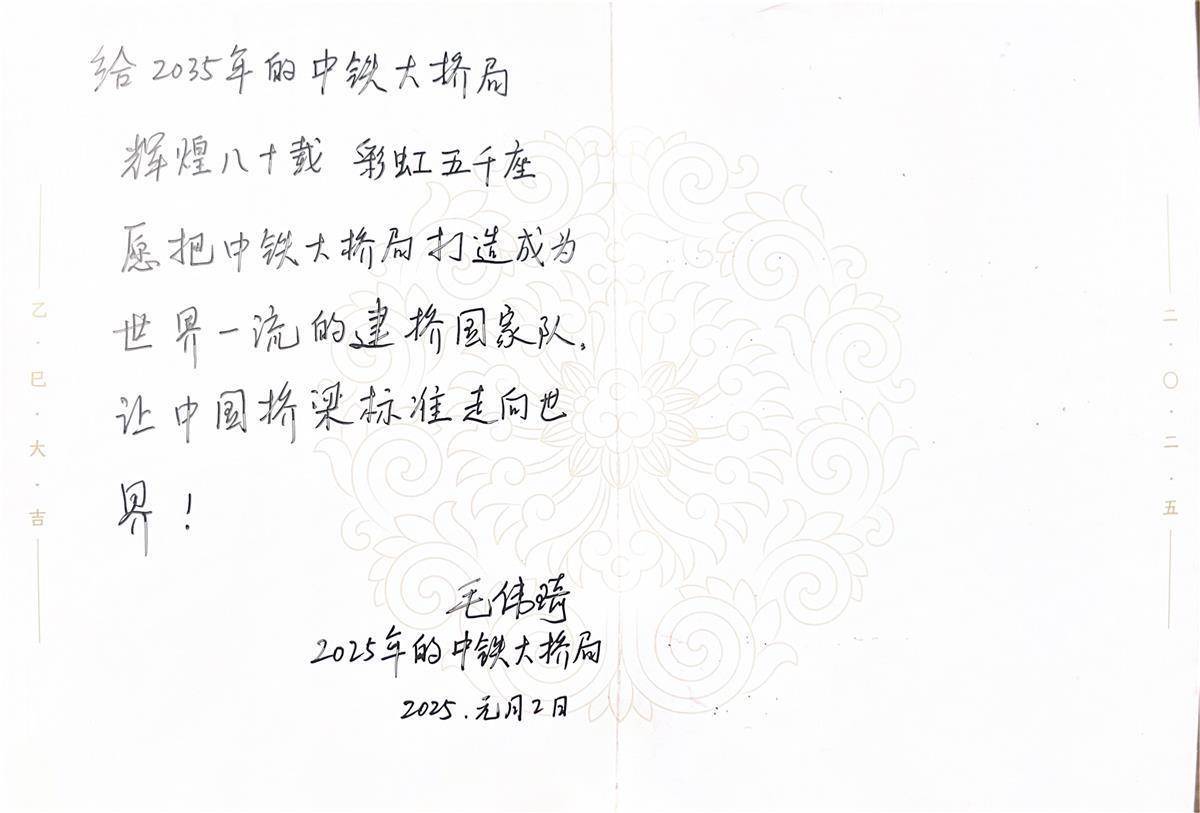 给2035年的中铁大桥局
辉煌八十载 彩虹五千座
愿把中铁大桥局打造成为
世界一流的建桥国家队,
让中国桥梁标准走向世
界!
毛伟琦
2025年的中铁大桥局
2025.元月2日
乙·巳·大·吉
二·〇·二·五